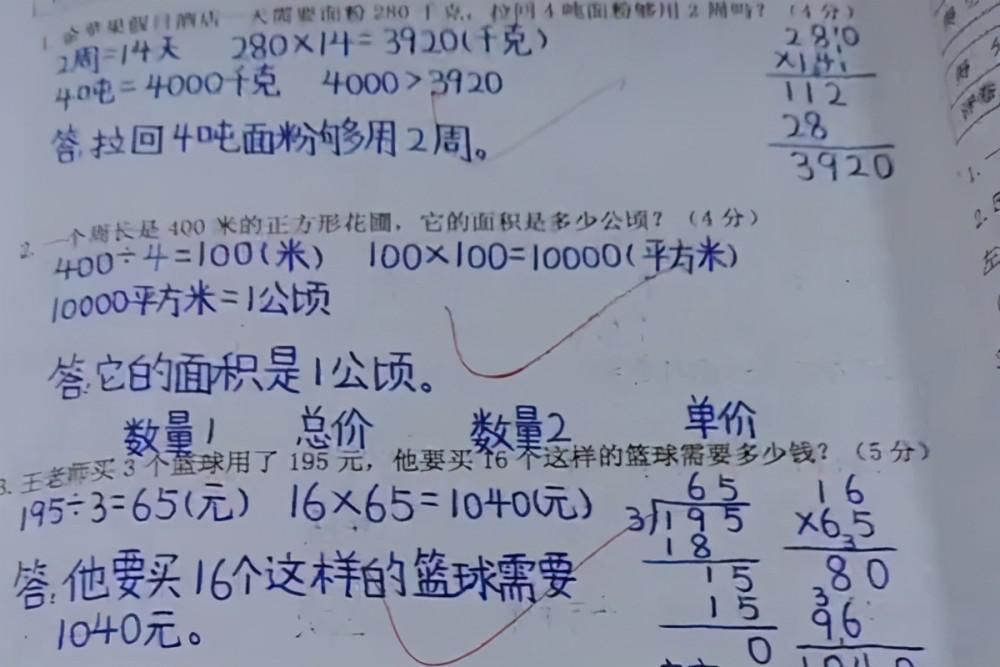 1. 苹果假日酒店一天需要面粉280千克，拉回4吨面粉够用2周吗？（4分）
2周=14天 280×14=3920(千克)
4吨=4000千克 4000>3920
答:拉回4吨面粉够用2周。
280
×14
112
28
3920
2. 一个周长是400米的正方形花圃，它的面积是多少公顷？（4分）
400÷4=100(米) 100×100=10000(平方米)
10000平方米=1公顷
答:它的面积是1公顷。
数量1 总价 数量2 单价
3. 王老师买3个篮球用了195元，他要买16个这样的篮球需要多少钱？（5分）
195÷3=65(元) 16×65=1040(元)
答:他要买16个这样的篮球需要
1040元。
65
3√195
18
15
15
0
16
×65
3
80
3
96
1040
1.
2.